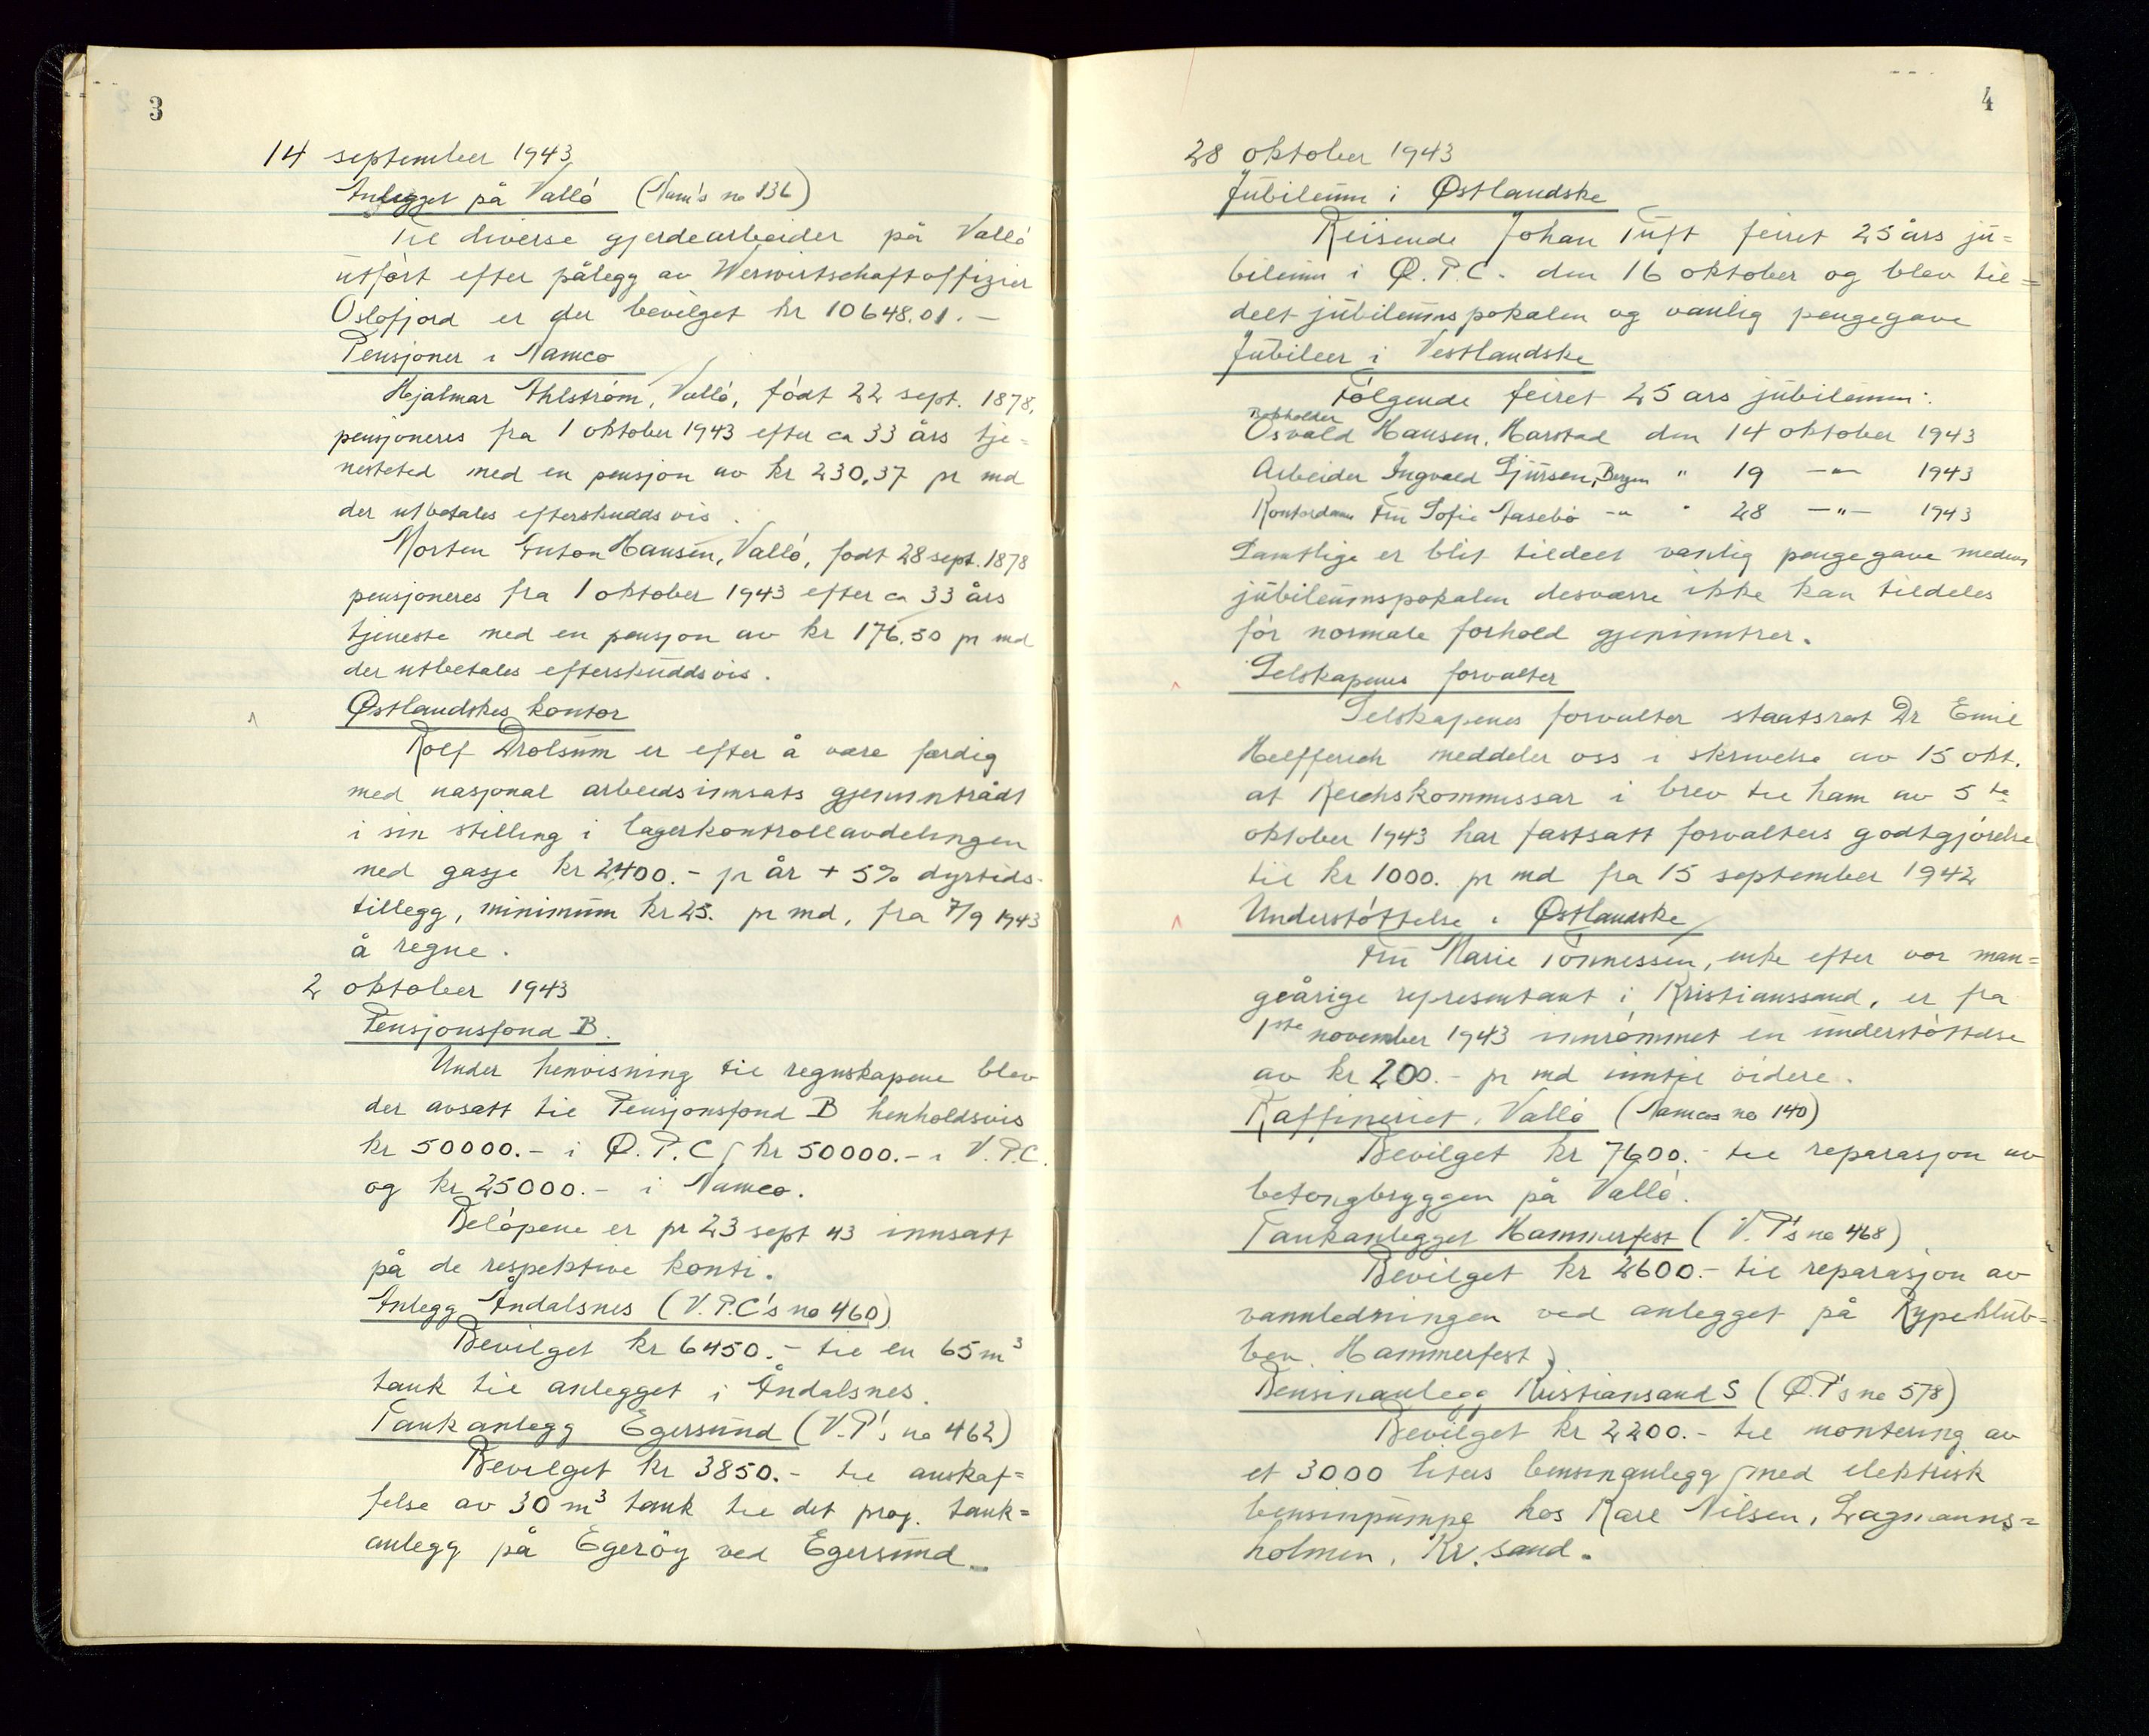 3
14 september 1943
Anlegget på Valló (Nam's no 136)
Til diverse gjerdearbeider på Valló
utfórt efter pålegg av Werwirtschaftoffizier
Oslofjord er der bevilget kr 10648.01.-
Pensjoner i Namco
Hjalmar Ahlstróm, Valló, fódt 22 sept. 1878,
pensjoneres fra 1 oktober 1943 efter ca 33 års tje=
nestetid med en pensjon av kr 230,37 pr md
der utbetales efterskuddsvis.
Morten Anton Hansen, Valló, fodt 28 sept. 1878
pensjoneres fra 1 oktober 1943 efter ca 33 års
tjeneste med en pensjon av kr 176.50 pr md
der utbetales efterskuddsvis.
Østlandskes kontor
Rolf Drolsum er efter å være færdig
med nasjonal arbeidsinnsats gjeninntrådt
i sin stilling i lagerkontrollavdelingen
med gasje kr 2400.- pr år + 5% dyrtids-
tillegg, minimum kr 25. pr md, fra 7/9 1943
å regne.
2 oktober 1943
Pensjonsfond B.
Under henvisning til regnskapene blev
der avsatt til Pensjonsfond B henholdsvis
kr 50000.- i Ø.P.C, kr 50000.- i V.P.C.
og kr 25000.- i Namco.
Belópene er pr 23 sept 43 innsatt
på de respektive konti.
Anlegg Åndalsnes (V.P.C's no 460)
Bevilget kr 6450.- til en 65 m³
tank til anlegget i Åndalsnes.
Tankanlegg Egersund (V.P's no 462)
Bevilget kr 3850.- til anskaf=
felse av 30 m³ tank til det proj. tank=
anlegg på Egeröy ved Egersund.
4
28 oktober 1943
Jubileum i Østlandske
Reisende Johan Tuft feiret 25 års ju=
bileum i Ø.P.C. den 16 oktober og blev til=
delt jubileumspokalen og vanlig pengegave
Jubileer i Vestlandske
Fólgende feiret 25 ars jubileum:
Bokholder
Osvald Hansen, Harstad den 14 oktober 1943
Arbeider Ingvald Sjursen, Bergen " 19 -"- 1943
Kontordame Fru Sofie Aasebó -"- " 28 -"- 1943
Samtlige er blit tildelt vanlig pengegave medens
jubileumspokalen desværre ikke kan tildeles
fór normale forhold gjeninntrer.
Selskapenes forvalter
Selskapenes forvalter staatsrat Dr Emil
Helfferich meddeler oss i skrivelse av 15 okt.
at Reichskommissar i brev til ham av 5te
oktober 1943 har fastsatt forvalters godtgjórelse
til kr 1000. pr md fra 15 september 1942
Understóttelse i Østlandske
Fru Marie Tónnessen, enke efter vor man=
geårige representant i Kristianssand, er fra
1ste november 1943 innrómmet en understóttelse
av kr 200.- pr md inntil videre.
Raffineriet, Valló (Namcos no 140)
Bevilget kr 7600.- til reparasjon av
betongbryggen på Valló.
Tankanlegget Hammerfest (V.P's no 468)
Bevilget kr 2600.- til reparasjon av
vannledningen ved anlegget på Rypeklub=
ben, Hammerfest.
Bensinanlegg Kristiansand S (Ø.P's no 578)
Bevilget kr 2200.- til montering av
et 3000 liters bensinanlegg med elektrisk
bensinpumpe hos Kare Nilsen, Lagmanns=
holmen, Kr.sand.